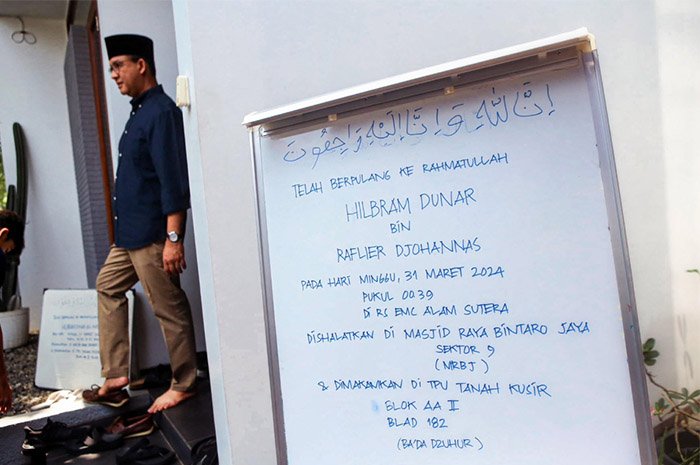 إنا لله وإنا إليه راجعون
TELAH BERPULANG KE RAHMATULLAH
HILBRAM DUNAR
BIN
RAFLIER DJOHANNAS
PADA HARI MINGGU, 31 MARET 2024
PUKUL 00.39
DI RS EMC ALAM SUTERA
DISHALATKAN DI MASJID RAYA BINTARO JAYA
SEKTOR 9
(MRBJ)
& DIMAKAMKAN DI TPU TANAH KUSIR
BLOK AA II
BLAD 182
(BA'DA DZUHUR)